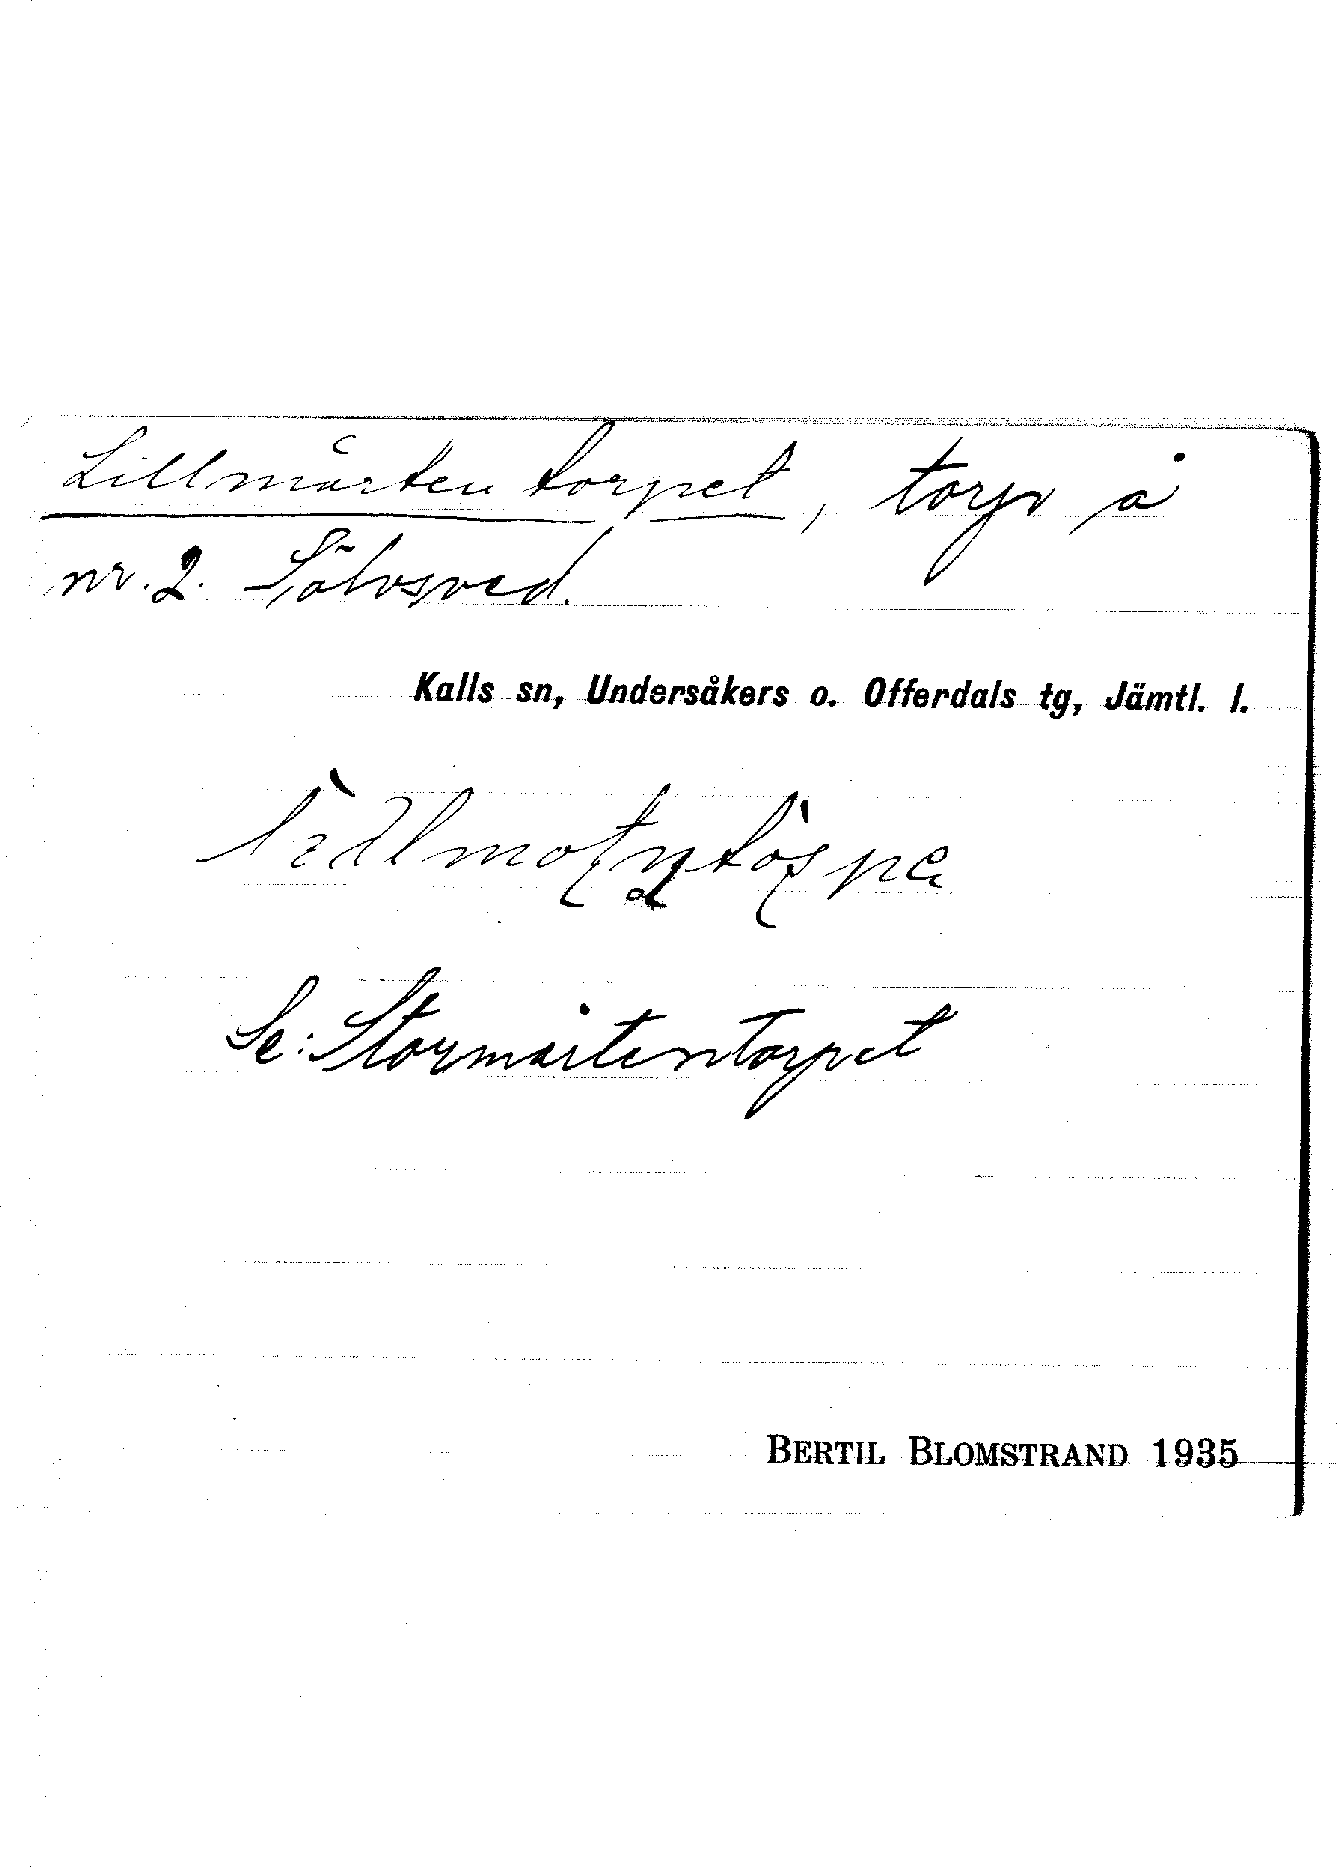 Lillmårtentorpet, torp å
nr. 2. Sölvsved.
Kalls sn, Undersåkers o. Offerdals tg, Jämtl. l.
Se: Stormårtentorpet
BERTIL BLOMSTRAND 1935